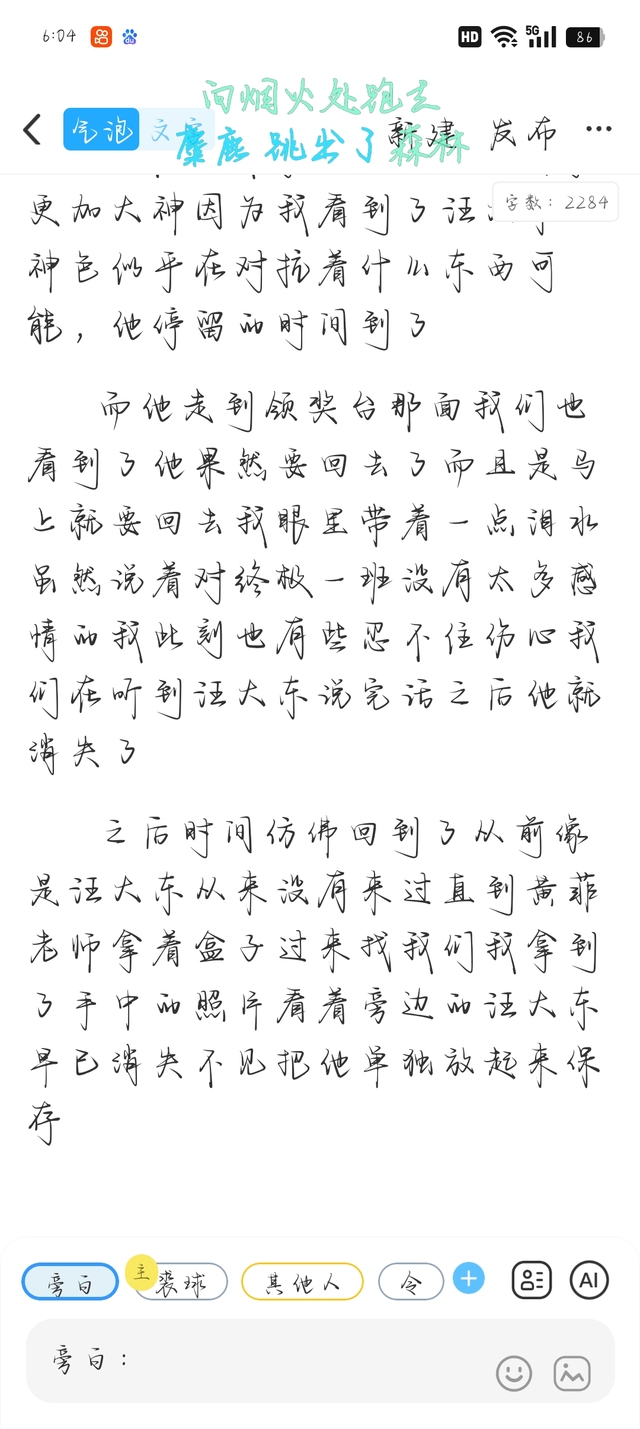 6:04
HD 5G 86
向烟火处跑去
麋鹿跳出了森林
气泡 文字 新建 发布
字数：2284
更加大神因为我看到了汪
神色似乎在对抗着什么东西可
能，他停留的时间到了
而他走到领奖台那面我们也
看到了他果然要回去了而且是马
上就要回去我眼里带着一点泪水
虽然说着对终极一班没有太多感
情的我此刻也有些忍不住伤心我
们在听到汪大东说完话之后他就
消失了
之后时间仿佛回到了从前像
是汪大东从来没有来过直到黄菲
老师拿着盒子过来找我们我拿到
了手中的照片看着旁边的汪大东
早已消失不见把他单独放起来保
存
旁白 主 裘球 其他人 令 + AI
旁白：